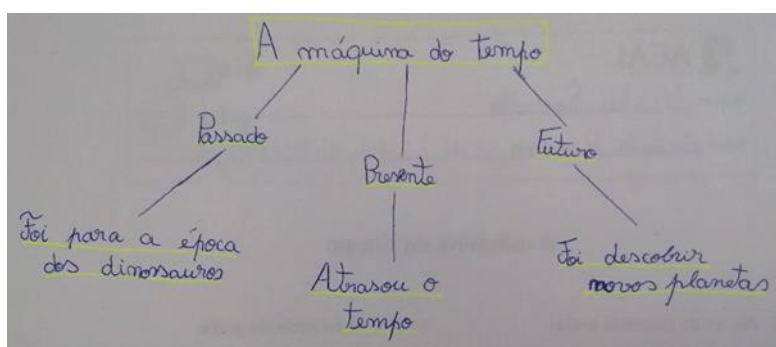 A máquina do tempo
Passado
Presente
Futuro
Foi para a época
dos dinossauros
Atrasou o
tempo
Foi descobrir
novos planetas